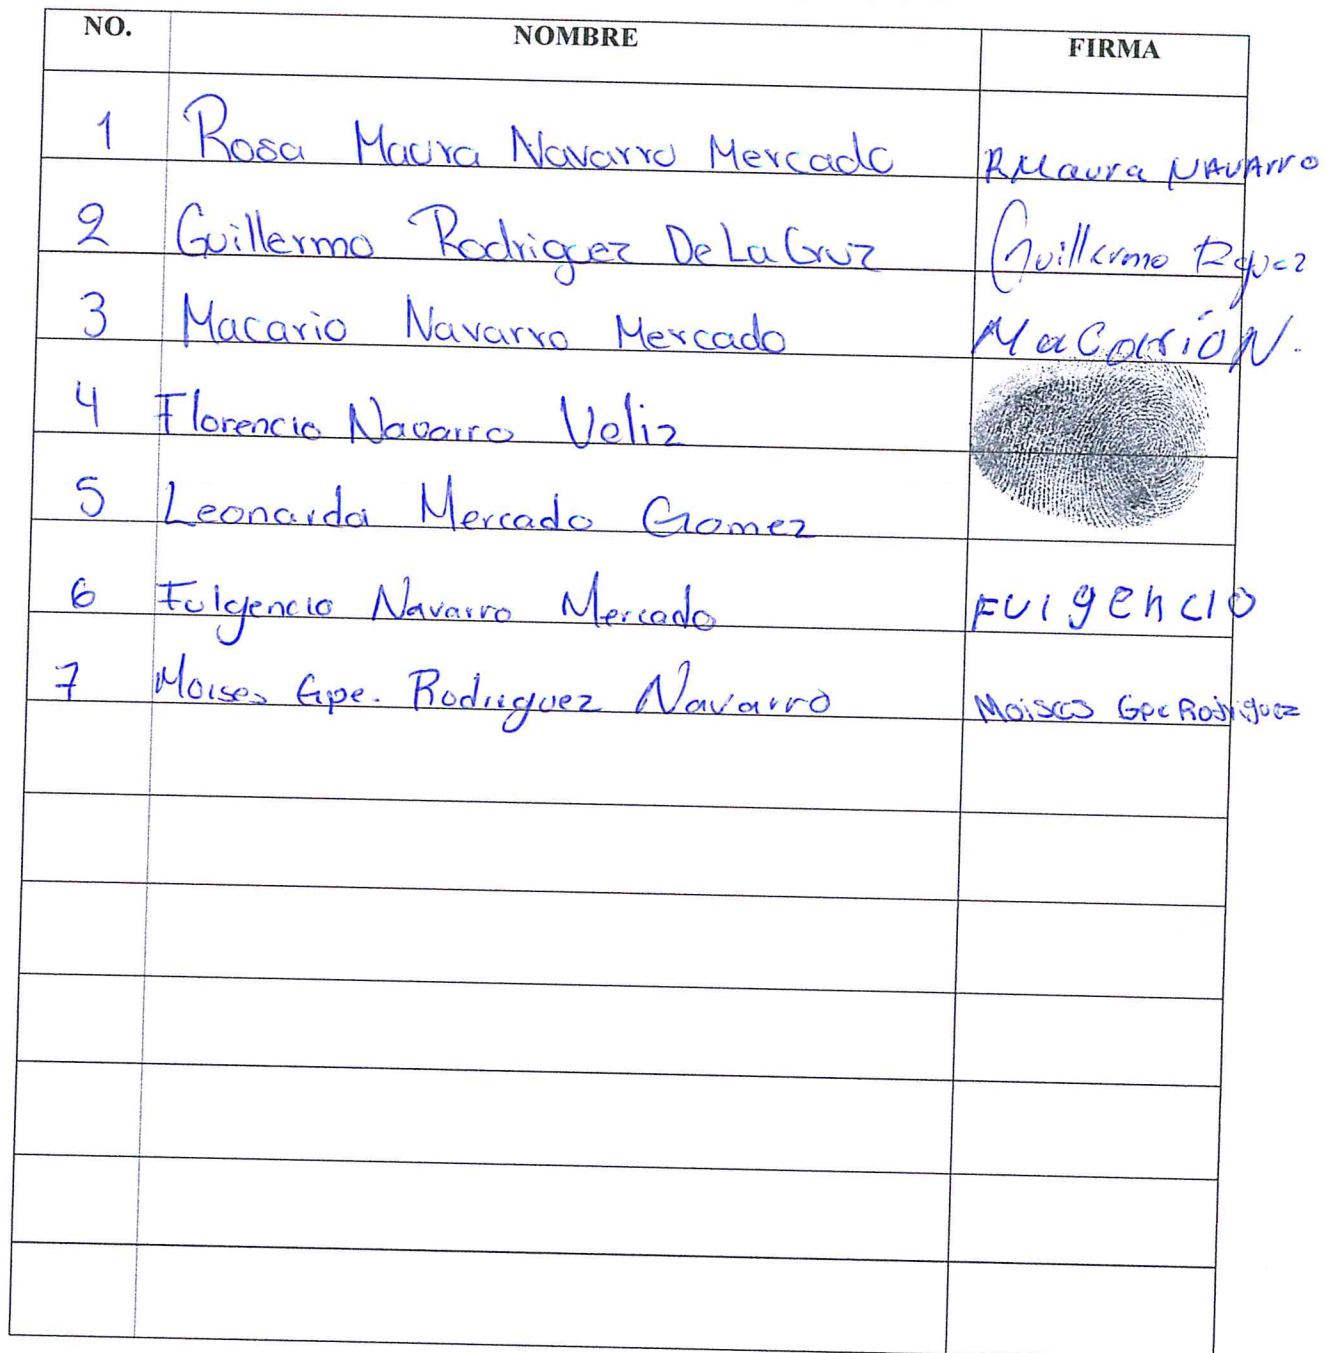 NO. NOMBRE FIRMA
1 Rosa Maura Navarro Mercado RMaura NAVArro
2 Guillermo Rodriguez De La Cruz Guillermo Rguez
3 Macario Navarro Mercado Macario N.
4 Florencio Navarro Veliz
5 Leonarda Mercado Gomez
6 Fulgencio Navarro Mercado Fulgencio
7 Moises Gpe. Rodriguez Navarro Moises Gpe Rodriguez